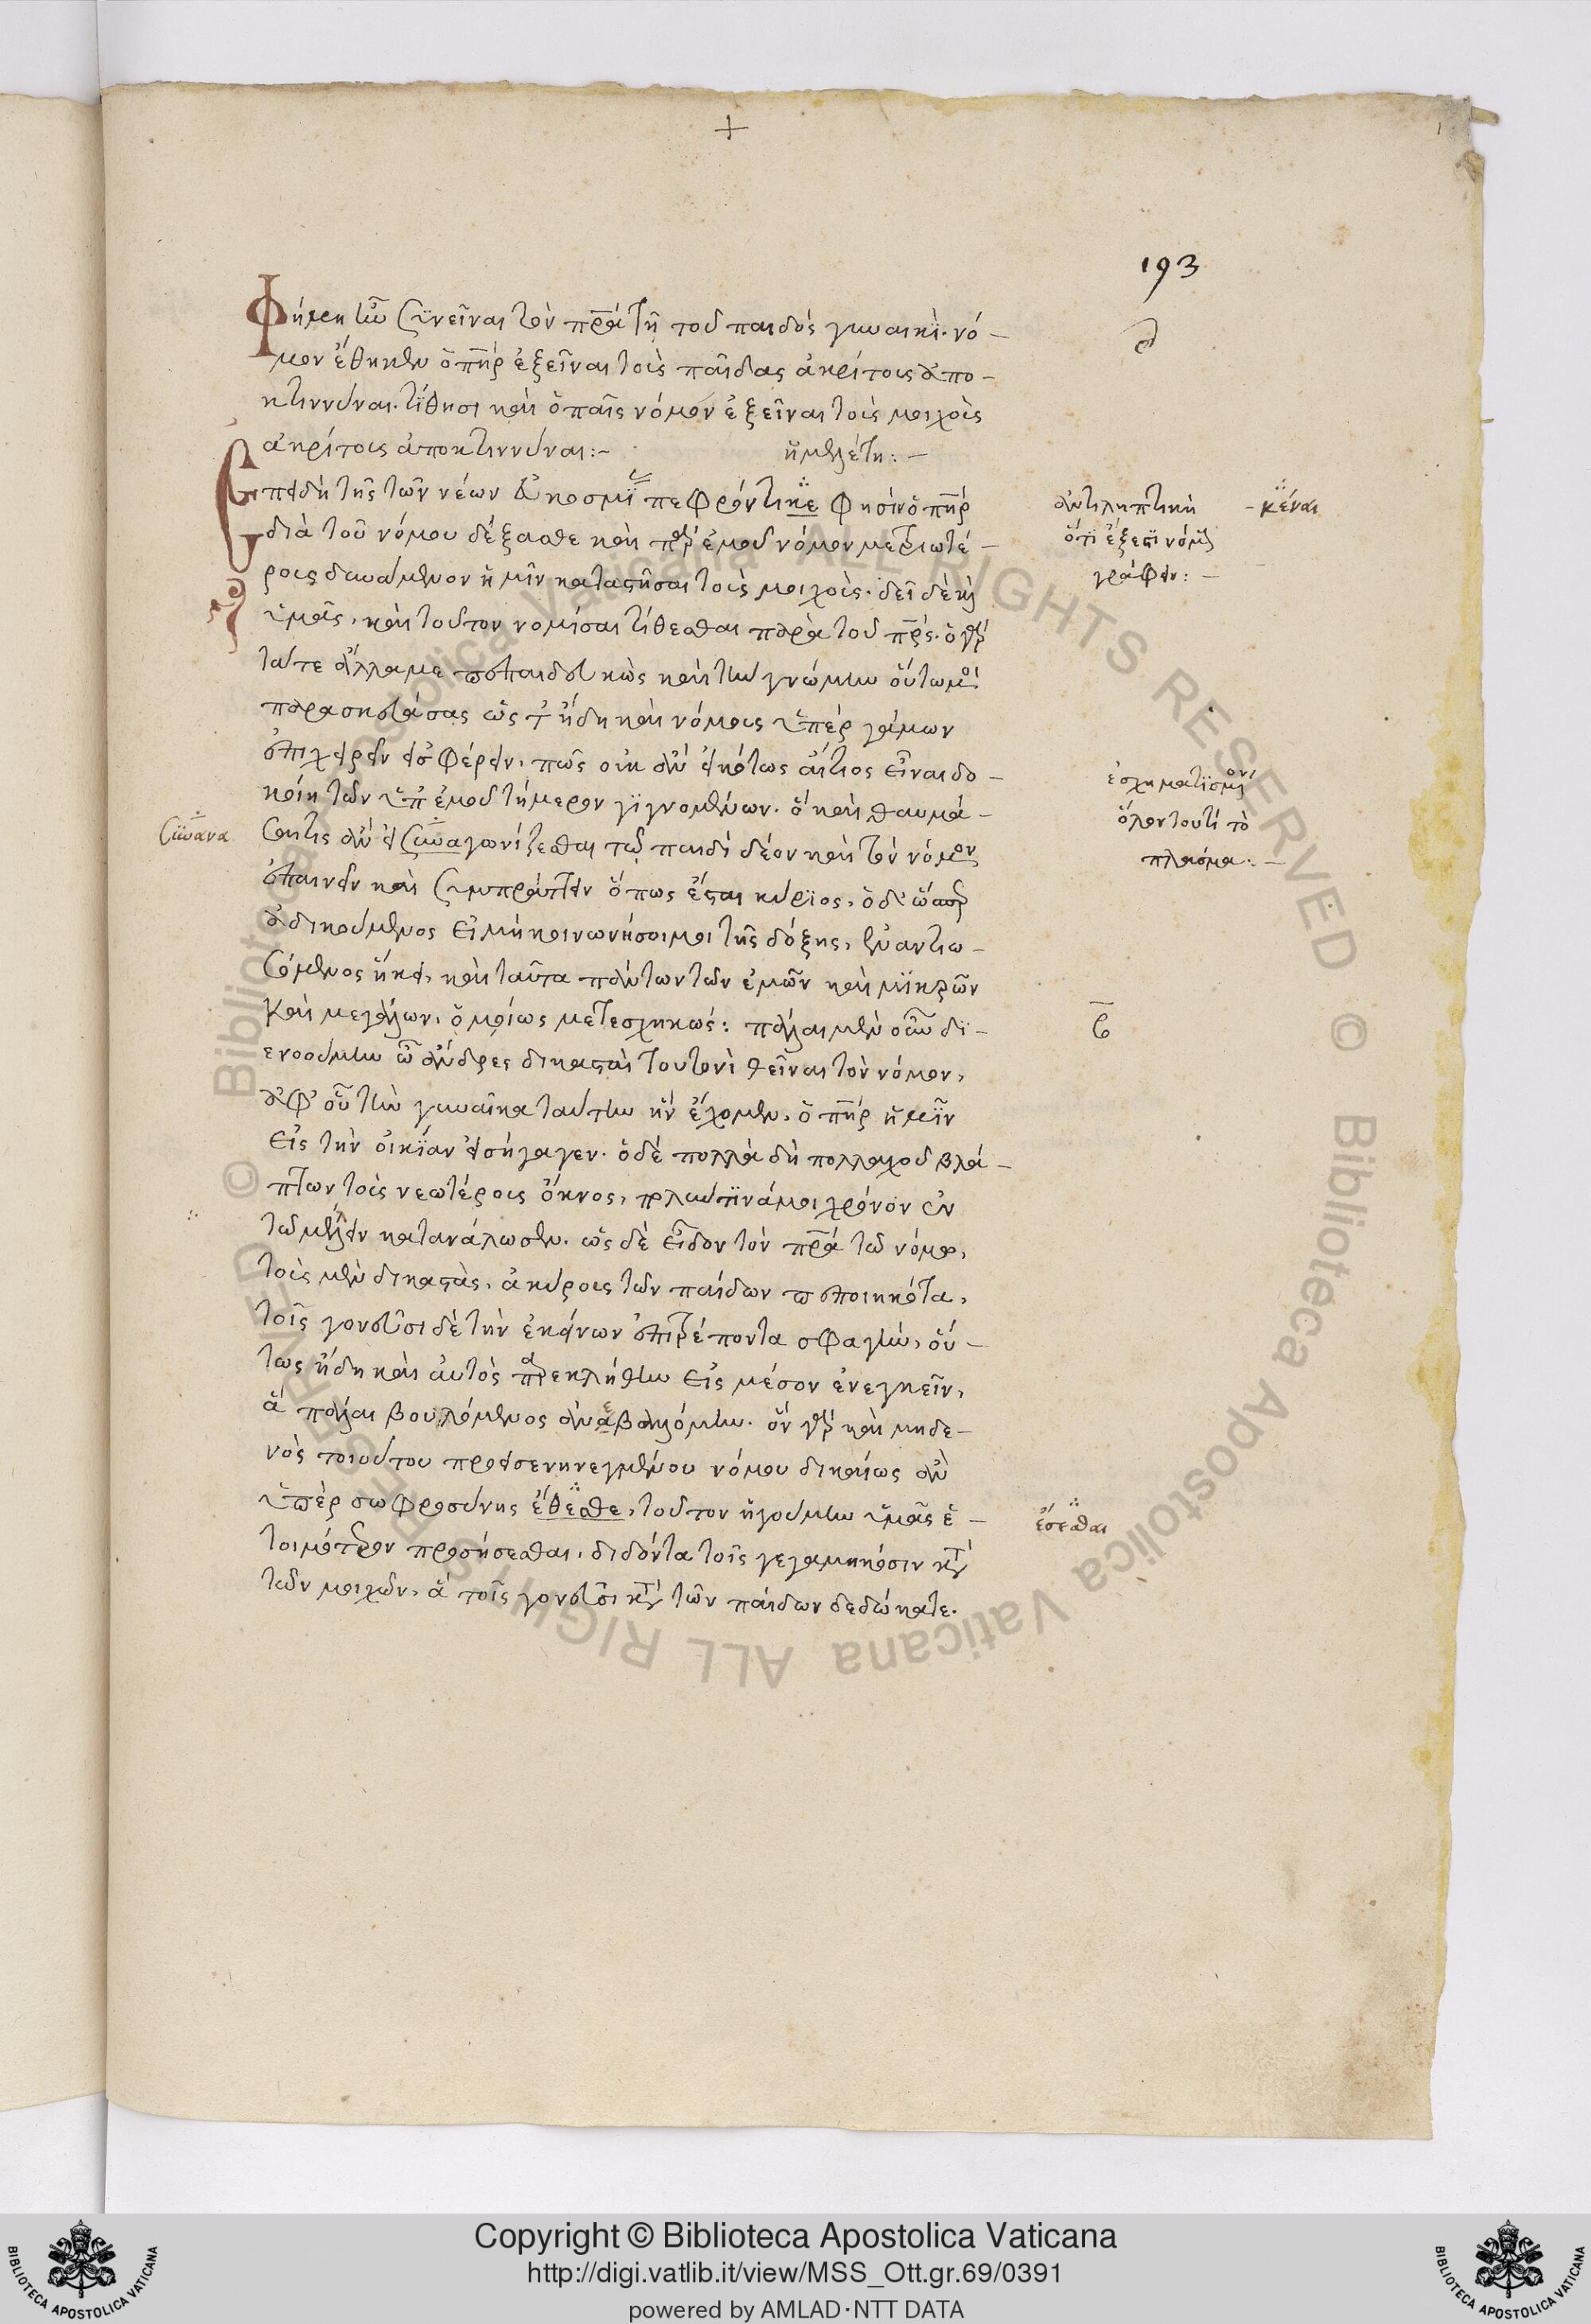 193
Φήμη ἦν συνεῖναι τὸν πρα τῆ τοῦ παιδὸς γυναικὶ. νό-
μον ἔθηκεν ὁ πηρ ἐξεῖναι τοὺς παῖδας ἀκρίτους ἀπο-
κτιννύναι. τίθησι καὶ ὁ παῖς νόμον ἐξεῖναι τοὺς μοιχοὺς
ἀκρίτους ἀποκτιννύναι:- ἡ μελέτη:-
Ἐπειδὴ τῆς τῶν νέων ἀκοσμί πεφρόντικε φησὶν ὁ πηρ
διὰ τοῦ νόμου δέξασθε καὶ παρ ἐμοῦ νόμον μετριωτέ-
ρους δυνάμενον ἡμῖν καταστῆσαι τοὺς μοιχοὺς. δεῖ δὲ καὶ
ὑμᾶς, καὶ τοῦτον νομίσαι τίθεσθαι παρὰ τοῦ πρς. ὁ γὰρ
τά τε ἄλλα με πεπαιδευκὼς καὶ τὴν γνώμην οὕτω μοι
παρασκευάσας ὡς ἤδη καὶ νόμους ὑπὲρ γάμων
ἐπιχειρεῖν εἰσφέρειν, πῶς οὐκ ἂν εἰκότως αἴτιος εἶναι δο-
κοίη τῶν ὑπ ἐμοῦ τήμερον γιγνομένων. ὃ καὶ θαυμά-
σαι τις ἂν εἰ συναγωνίζεσθαι τῶ παιδὶ δέον καὶ τὸν νόμον
ἐπαινεῖν καὶ συμπράττειν ὅπως ἔσται κύριος, ὁ δ' ὥσπερ
ἀδικούμενος εἰ μὴ κοινωνήσοι μοι τῆς δόξης, ἐναντιω-
σόμενος ἥκει, καὶ ταῦτα πάντων τῶν ἐμῶν καὶ μικρῶν
καὶ μεγάλων, ὁμοίως μετεσχηκώς: πάλαι μὲν οὖν δι-
ενοούμην ὦ ἄνδρες δικασταὶ τουτονὶ θεῖναι τὸν νόμον,
ἀφ' οὗ τὴν γυναῖκα ταύτην ἣν ἔχομεν, ὁ πηρ ἡμῖν
εἰς τὴν οἰκίαν εἰσήγαγεν. ὁ δὲ πολλὰ δὴ πολλαχοῦ βλά-
πτων τοὺς νεωτέρους ὄκνος, πλὴν τινά μοι χρόνον ἐν
τῶ μέλλειν κατανάλωσεν. ὡς δὲ εἶδον τὸν πρα τῶ νόμω,
τοὺς μὲν δικαστὰς, ἀκύρους τῶν παίδων πεποιηκότα,
τοῖς γονεῦσι δὲ τὴν ἐκείνων ἐπιτρέποντα σφαγὴν, οὕ-
τως ἤδη καὶ αὐτὸς παρεκλήθην εἰς μέσον ἐνεγκεῖν,
ἃ πάλαι βουλόμενος ἀνεβαλλόμην. ὃν γὰρ καὶ μηδε-
νὸς τοιούτου προεισενηνεγμένου νόμου δικαίως ἂν
ὑπὲρ σωφροσύνης ἔθεσθε, τοῦτον ἡγούμην ὑμᾶς ἑ-
τοιμότερον προσήσεσθαι, διδόντα τοῖς γεγαμηκόσιν κατὰ
τῶν μοιχῶν, ἃ τοῖς γονεῦσι κατὰ τῶν παίδων δεδώκατε.
ἀντιληπτικὴ
ὅτι ἔξεστι νόμους
γράφειν:-
κέναι
συνανα
ἐσχημάτισμον
ὅλον τουτὶ τὸ
πλάσμα:-
ἔσεσθαι
Copyright © Biblioteca Apostolica Vaticana
http://digi.vatlib.it/view/MSS_Ott.gr.69/0391
powered by AMLAD·NTT DATA
BIBLIOTECA APOSTOLICA VATICANA
BIBLIOTECA APOSTOLICA VATICANA
© Biblioteca Apostolica Vaticana ALL RIGHTS RESERVED © Biblioteca Apostolica Vaticana ALL RIGHTS RESERVED